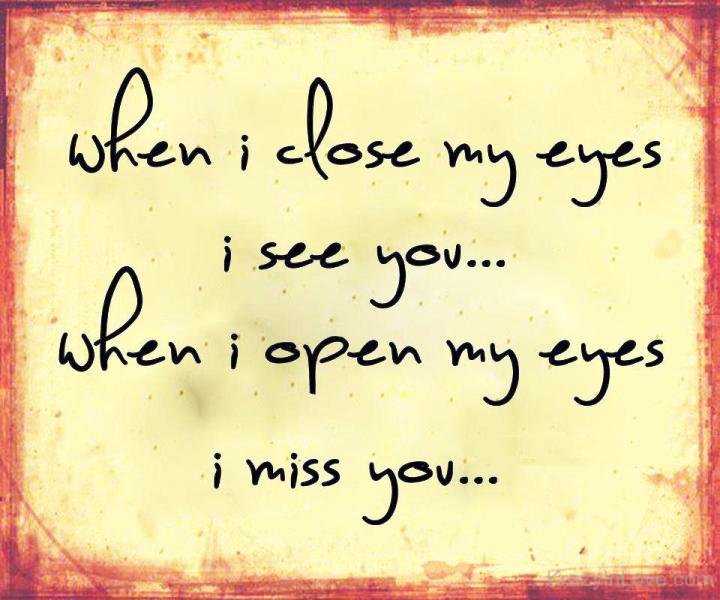 when i close my eyes
i see you...
when i open my eyes
i miss you...
KrazyInLove.com